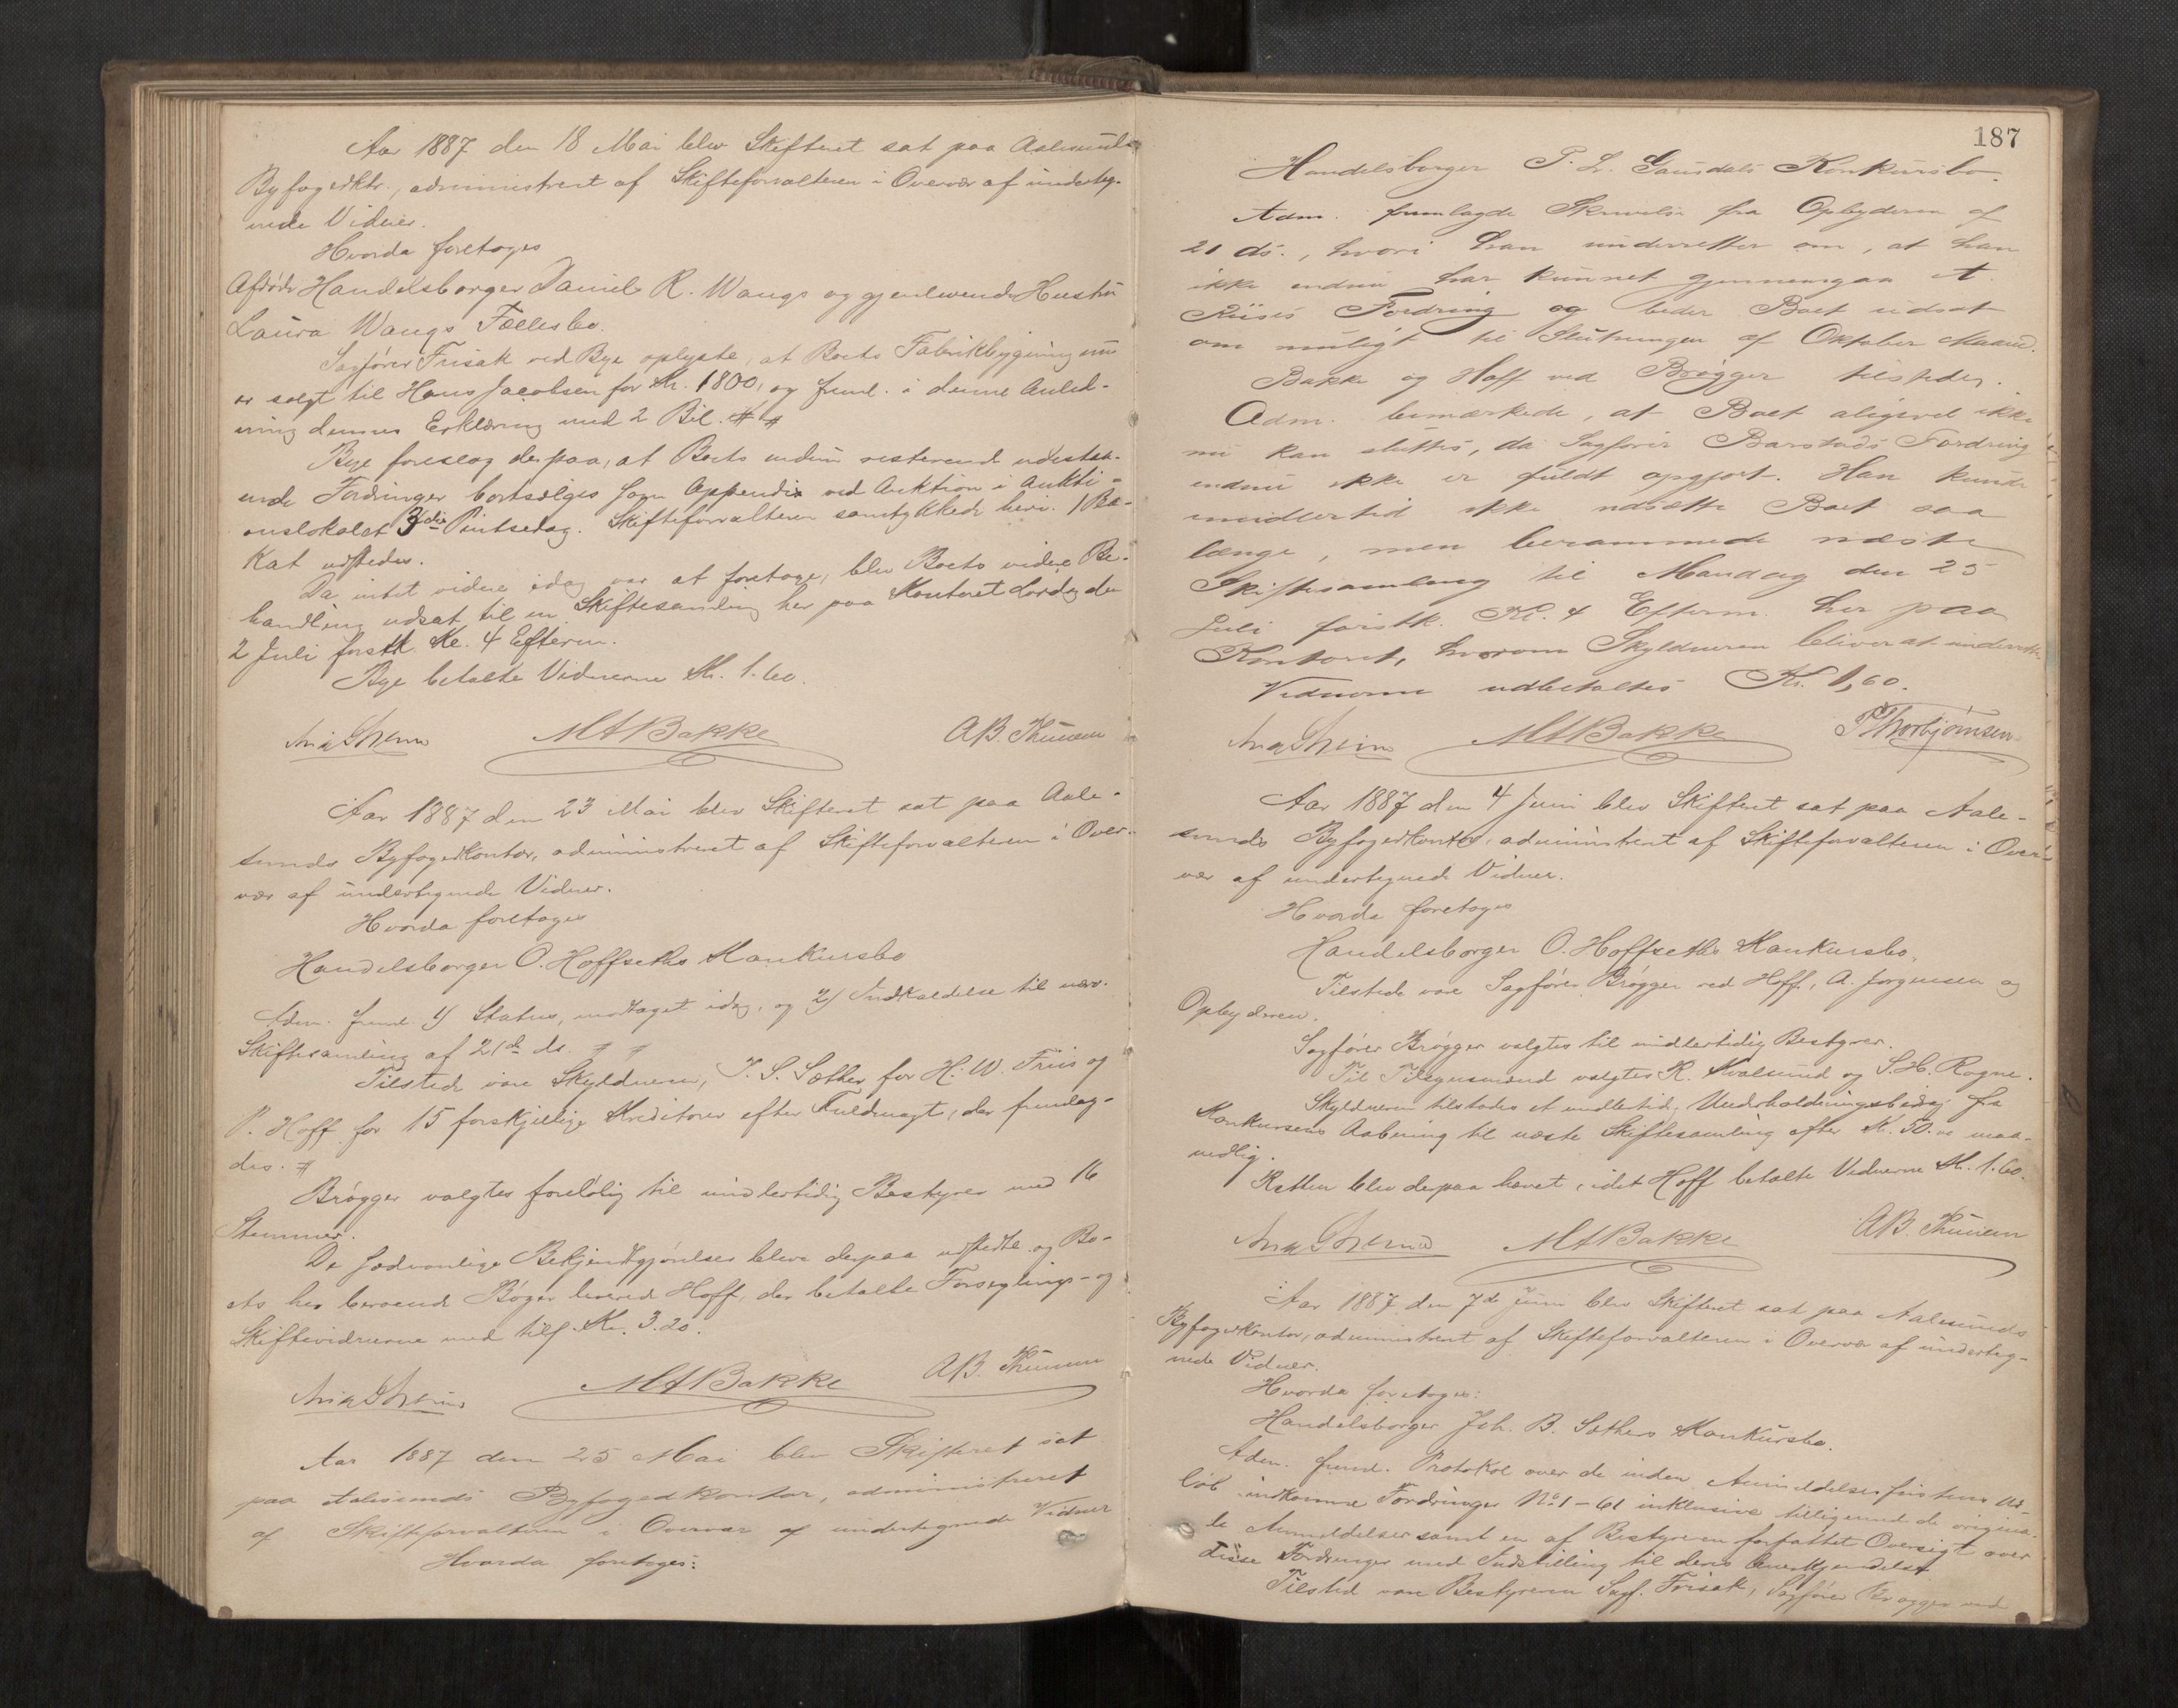 Aar 1887 den 18 Mai blev Skifteret sat paa Aalesunds
Byfogedktr., administreret af Skifteforvalteren i Overvær af underteg-
nede Vidner.
Hvorda foretoges
Afdøde Handelsborger Daniel R. Wangs og gjenlevende Hustru
Laura Wangs Fællesbo.
Sagfører Frisak ved Bye oplyste, at Boets Fabrikbygning nu
er solgt til Hans Jacobsen for Kr. 1800, og freml. i denne Anled-
ning dennes Erklæring med 2 Bil. # #
Bye foreslog derpaa, at Boets endnu resterende udestaa-
ende Fordringer bortsælges som Appendix ved Auktion i Aukti-
onslokalet 3die Pintsedag. Skifteforvalteren samtykkede heri. Pla-
kat udstedes.
Da intet videre idag var at foretage, blev Boets videre Be-
handling udsat til en Skiftesamling her paa Kontoret Lørdag den
2 Juli førstk. Kl. 4 Efterm.
Bye betalte Vidnerne Kr. 1.60.
MABakke A.B. Thunem
Aar 1887 den 23 Mai blev Skifteret sat paa Aale-
sunds Byfogedkontor, administreret af Skifteforvalteren i Over-
vær af undertegnede Vidner.
Hvorda foretoges
Handelsborger O. Hoffseths Konkursbo
Adm. freml. 1) Status, modtaget idag, og 2) Indkaldelse til nærv.
Skiftesamling af 21de ds. # #
Tilstede vare Skyldneren, J. S. Sæther for H. W. Friis og
P. Hoff for 15 forskjellige Kreditorer efter Fuldmagt, der fremlag-
des. #
Brøgger valgtes foreløbig til midlertidig Bestyrer med 16
Stemmer.
De sædvanlige Bekjendtgjørelser bleve derpaa udstedte og Bo-
ets her beroende Bøger leverede Hoff, der betalte Forseglings- og
Skiftevidnerne med tils. Kr. 3.20.
MABakke A.B. Thunem
Aar 1887 den 25 Mai blev Skifteret sat
paa Aalesunds Byfogedkontor, administreret
af Skifteforvalteren i Overvær af undertegnede Vidner
Hvorda foretoges:
187
Handelsborger P. L. Gausdals Konkursbo.
Adm. fremlagde Skrivelse fra Opbyderen af
21 ds., hvori han underretter om, at han
ikke endnu har kunnet gjennemgaa A.
Riises Fordring og beder Boet udsat
om muligt til Slutningen af Oktober Maaned.
Bakke og Hoff ved Brøgger tilstede.
Adm. bemærkede, at Boet aligevel ikke
nu kan sluttes, da Sagfører Barstads Fordring
endnu ikke er fuldt opgjort. Han kunde
imidlertid ikke udsætte Boet saa
længe, men berammede næste
Skiftesamling til Mandag den 25
Juli førstk. Kl. 4 Efterm. her paa
Kontoret, hvorom Skyldneren bliver at underrette.
Vidnerne udbetaltes Kr. 1,60.
MABakke P Thorbjørnsen
Aar 1887 den 4 Juni blev Skifteret sat paa Aale-
sunds Byfogedkontor, administreret af Skifteforvalteren i Over-
vær af undertegnede Vidner.
Hvorda foretoges
Handelsborger O. Hoffseths Konkursbo.
Tilstede vare Sagfører Brøgger ved Hoff, A. Jørgensen og
Opbyderen.
Sagfører Brøgger valgtes til midlertidig Bestyrer.
Til Tilsynsmænd valgtes K. Kvalsund og S. H. Rogne.
Skyldneren tilstodes et midlertidig Underholdningsbidrag fra
Konkursens Aabning til næste Skiftesamling efter Kr. 50.00 maa-
nedlig.
Retten blev derpaa hævet, idet Hoff betalte Vidnerne Kr. 1.60.
MABakke A.B. Thunem
Aar 1887 den 7de Juni blev Skifteret sat paa Aalesunds
Byfogedkontor, administreret af Skifteforvalteren i Overvær af underteg-
nede Vidner.
Hvorda foretoges:
Handelsborger Joh. B. Sæthers Konkursbo.
Adm. freml. Protokol over de inden Anmeldelsesfristens Ud-
løb indkomne Fordringer No 1-61 inklusive tilligemed de origina-
le Anmeldelser samt en af Bestyreren forfattet Oversigt over
disse Fordringer med Indstilling til deres Anerkjendelse.
Tilsted vare Bestyreren Sagf. Frisak, Sagfører Brøgger ved